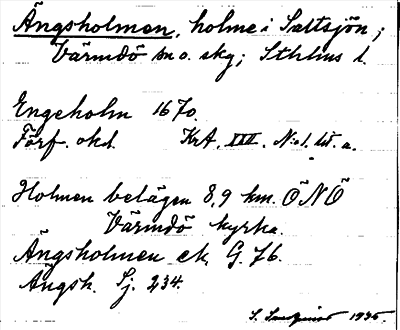 Ängsholmen, holme i Saltsjön;
Värmdö sn o. skg; Sthlms l.
Engeholm 1670.
Förf. okd. KrA. XXX. N:o 1. lit. a.
Holmen belägen 8,9 km. ÖNÖ
Värmdö kyrka.
Ängsholmen ek. G. 76.
Ängsh. Sj. 234.
S. 1935